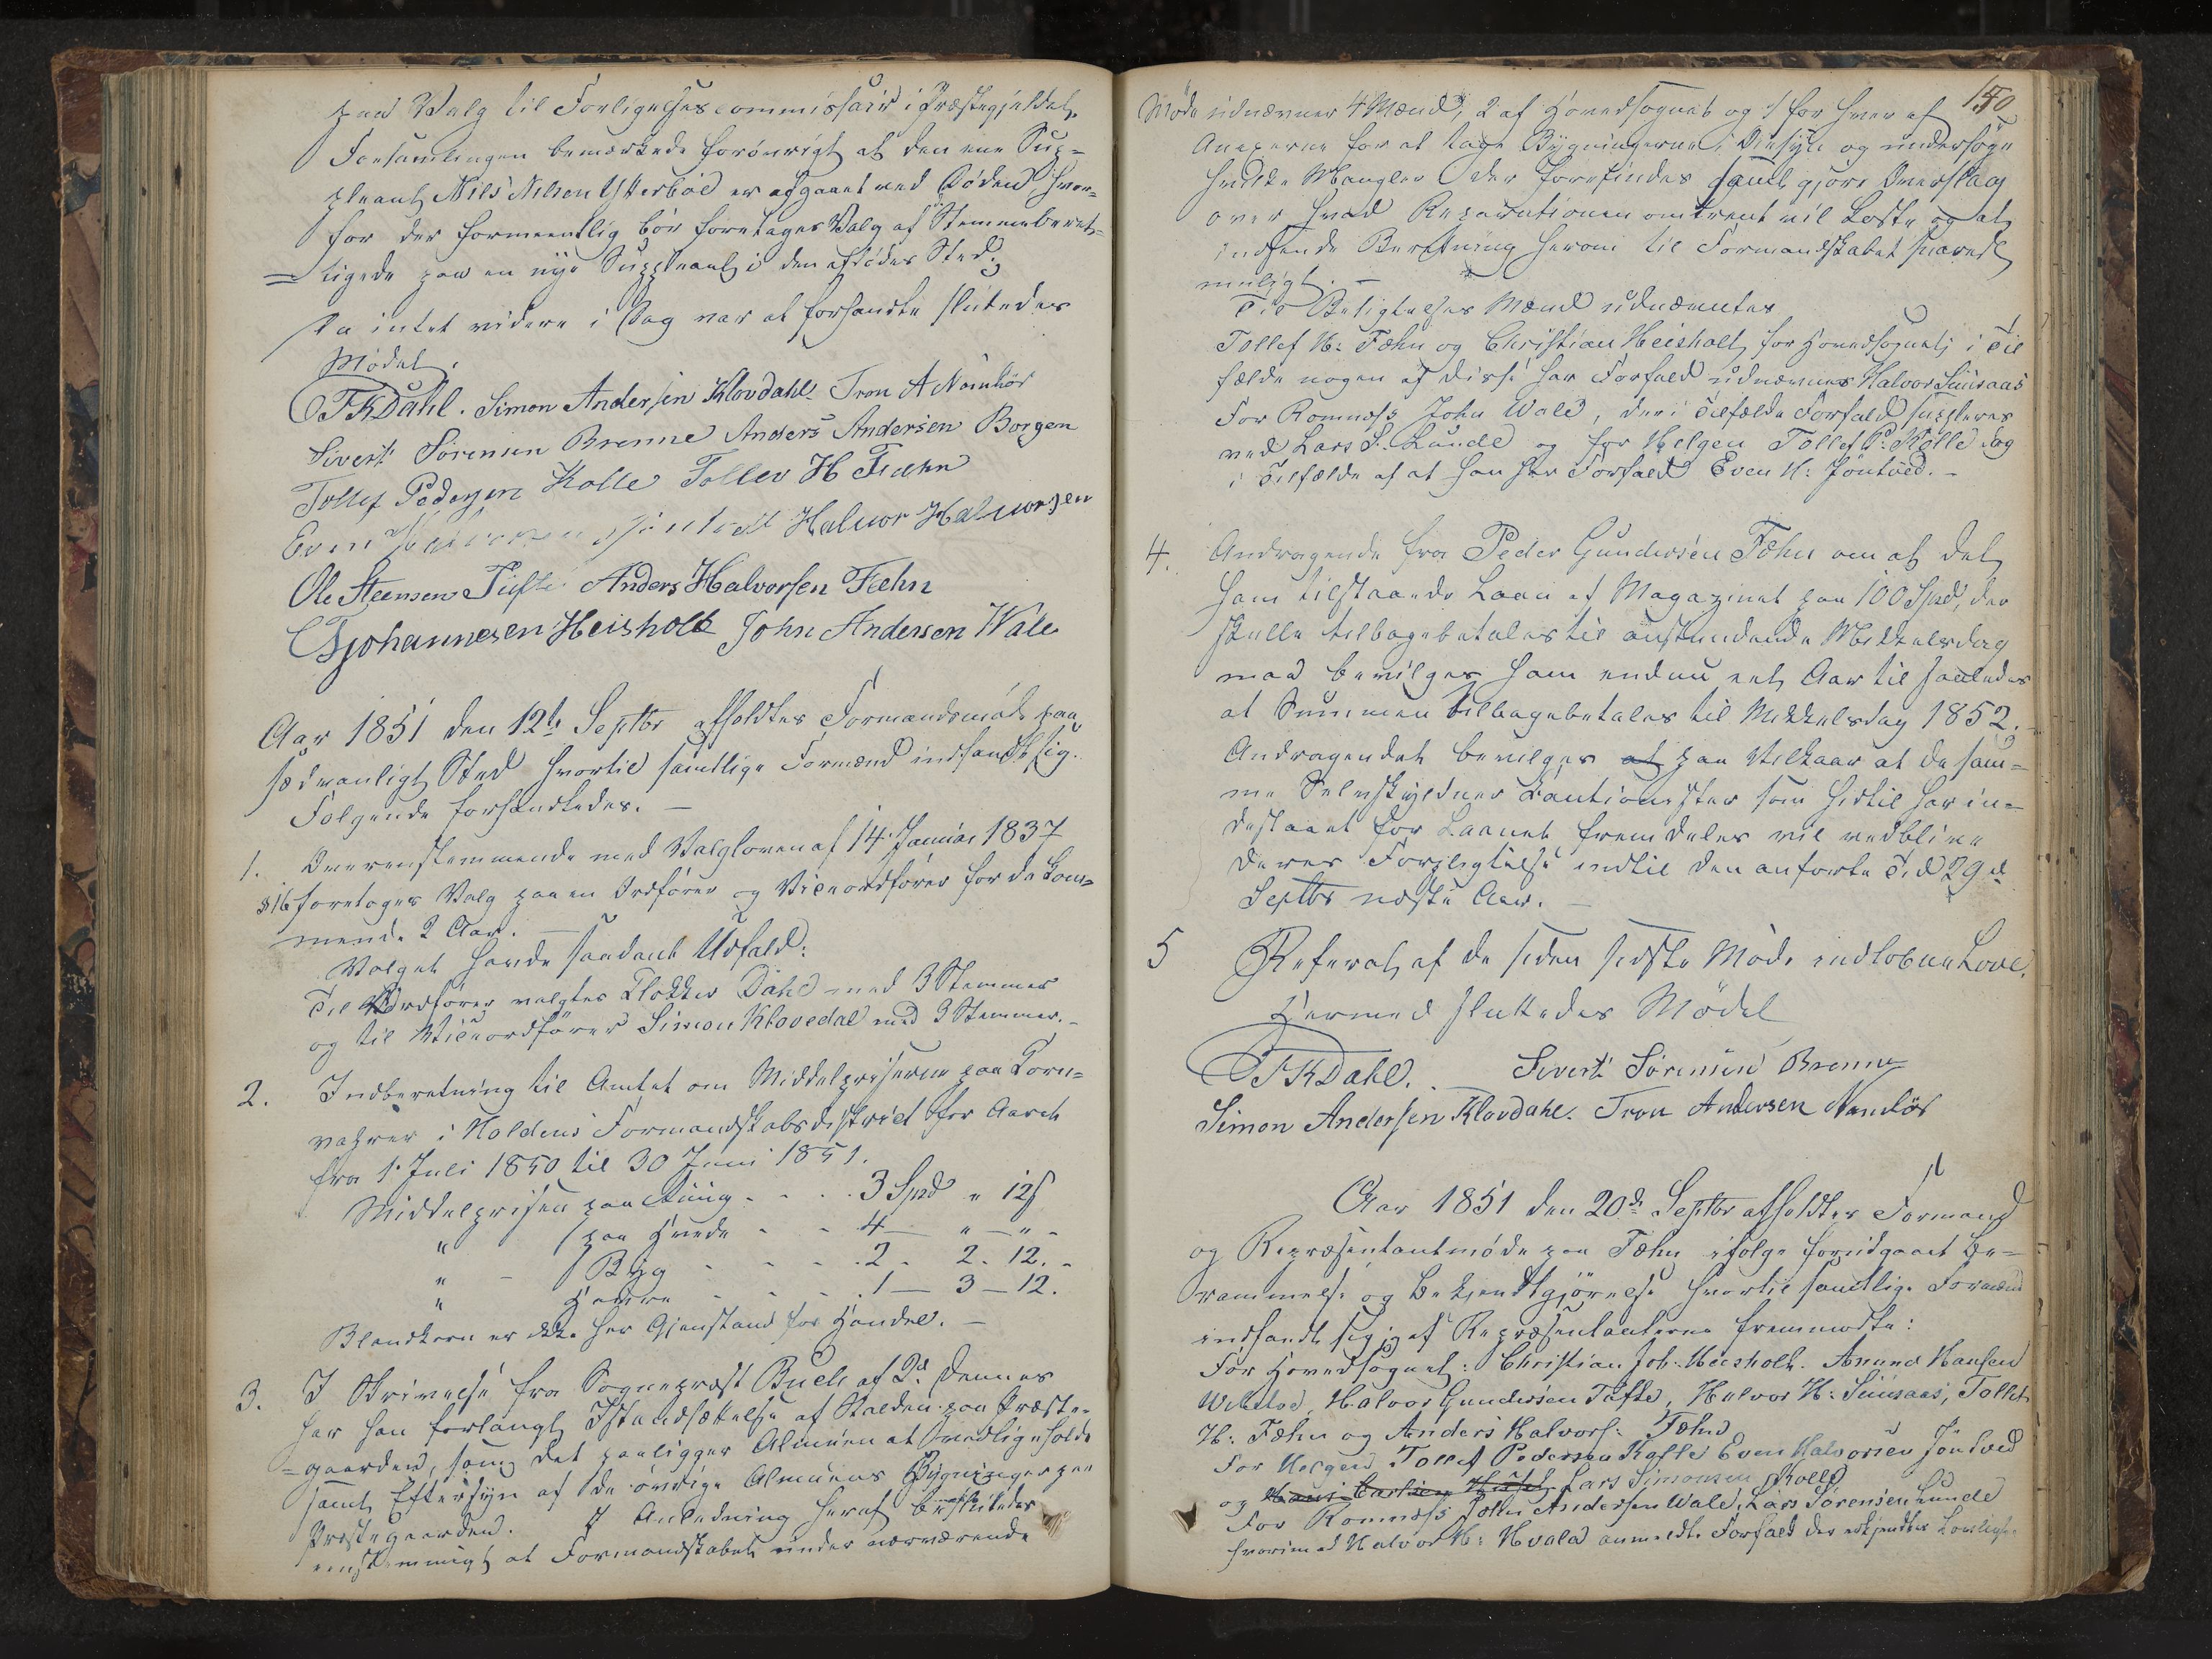 paa Valg til Forligelsescommissair i Præstegjeldet.
Forsamlingen bemærkede forövrigt at den ene Sup=
pleant Nils Nilsen Ytterböe er afgaaet ved Döden, hvor=
for der formeentlig bör foretages Valg af Stemmeberet=
=tigede paa en nye Suppleant i den afdödes Sted.
Da intet videre i Dag var at forhandle sluttedes
Mödet.
TKDahl. Simon Andersen Klovdahl Tron A Namlös
Sivert Sörensen Brenne Anders Andersen Borgen
Tollef Pedersen Kolle Tollev H Fæhn
Even Halvorsen Jöntvedt Halvor Halvorsen
Ole Steensen Tufte Anders Halvorsen Fæhn
Johannesen Heisholt John Andersen Wale
Aar 1851 den 12te Septbr afholdtes Formandsmöde paa
sædvanligt Sted hvortil samtlige Formænd indfandt sig.
Fölgende forhandledes. —
1. Overensstemmende med Valgloven af 14 Januar 1837
§16 foretoges Valg paa en Ordförer og Viceordförer for de kom=
mende 2 Aar. —
Valget havde saadant Udfald:
Til Ordförer valgtes Klokker Dahl med 3 Stemmer
og til Viceordförer Simon Klovedal med 3 Stemmer. –
2. Indberetning til Amtet om Middelpriserne paa Korn=
vahrer i Holdens Formandskabsdistrict for Aaret
fra 1 Juli 1850 til 30 Juni 1851.
Middelprisen paa Rug - - - 3 Spd " 12 s
" paa Hvede - - 4 — " — " -
" - Byg - - - 2 - 2 - 12. -
" Havre - - - 1 — 3 — 12.
Blandkorn er ikke her Gjenstand for Handel. —
3. I Skrivelse fra Sognepræst Buch af 2d dennes
har han forlangt Istandsættelse af Stalden paa Præste-
=gaarden, som det paaligger Almuen at vedligeholde
samt Eftersyn af de övrige Almuens Bygninger paa
Præstegaarden. I Anledning heraf besluttedes
eenstemmigt at Formandskabet under nærværende
150
Möde udnævner 4 Mænd, 2 af Hovedsognet og 1 for hver af
Anexerne for at tage Bygningerne i Öiesyn og undersöge
hvilke Mangler der forefindes samt gjöre Overslag
over hvad Reparationen omtrent vil koste og at
indsende Beretning herom til Formandskabet snarest
muligt. —
Til Besigtelses Mænd udnævntes
Tollef H: Fæhn og Christian Heisholt for Hovedsognet; i Til
fælde nogen af disse har Forfald udnævnes Halvor Suusaas
For Romnæs John Wale, der i Tilfælde Forfald suppleres
ved Lars S. Lunde og for Helgen Tollef P. Kolle og
i Tilfælde af at han har Forfald Even H: Jöntved. –
4. Andragende fra Peder Gundersen Fæhn om at det
ham tilstaaede Laan af Magazinet paa 100 Spd, der
skulle tilbagebetales til anstundende Mikkelsdag
maa bevilges ham endnu eet Aar til saaledes
at Summen tilbagebetales til Mikkelsdag 1852. –
Andragendet bevilges at paa Vilkaar at de sam=
me Selvskyldner Cautionister som hidtil har in=
destaaet for Laanet fremdeles vil vedblive
deres Forpligtelse indtil den anförte Tid 29d
Septbr næste Aar. —
5 Referat af de siden sidste Möde indlöbne Love.
Hermed sluttedes Mödet
TKDahl. Sivert Sörensen Brenne
Simon Andersen Klovdahl. Tron Andersen Namlös
Aar 1851 den 20de Septbr afholdtes Formand
og Repræsentantmöde paa Fæhn ifölge forudgaaet Be=
rammelse og Bekjendtgjörelse hvortil samtlige Formænd
indfandt sig; af Repræsentanterne fremmödte:
For Hovedsognet: Christian Joh. Heisholt. Amund Hansen
Halvor Gundersen Tufte, Halvor H: Suusaas, Tollef
H: Fæhn og Anders Halvors: Fæhn
For Helgen Tollef Pedersen Kolle Even Halvorsen Jöntved
og Lars Simonsen Kolle
For Romnæs John Andersen Wale, Lars Sörensen Lunde
hvorimod Halvor H: Hvala anmeldte Forfald der erkjendtes Lovligt.